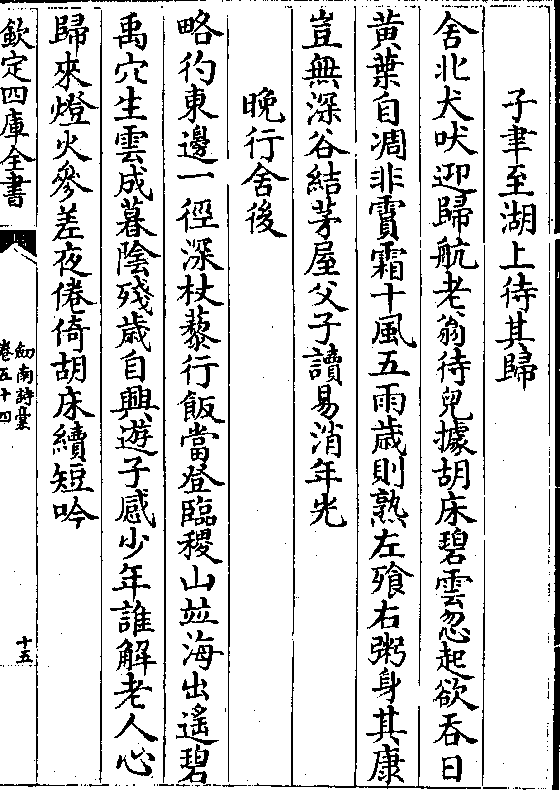 子聿至湖上待其歸
舍北犬吠迎歸航老翁待兒據胡床碧雲忽起欲吞日
黄葉自凋非賈霜十風五雨歲則熟左飱右粥身其康
豈無深谷結茅屋父子讀易消年光
晚行舍後
略彴東邊一徑深杖藜行飯當登臨稷山並海出遙碧
禹穴生雲成暮陰殘歲自興遊子感少年誰解老人心
歸來燈火參差夜倦倚胡床續短吟
欽定四庫全書
劍南詩藁
卷五十四
十五